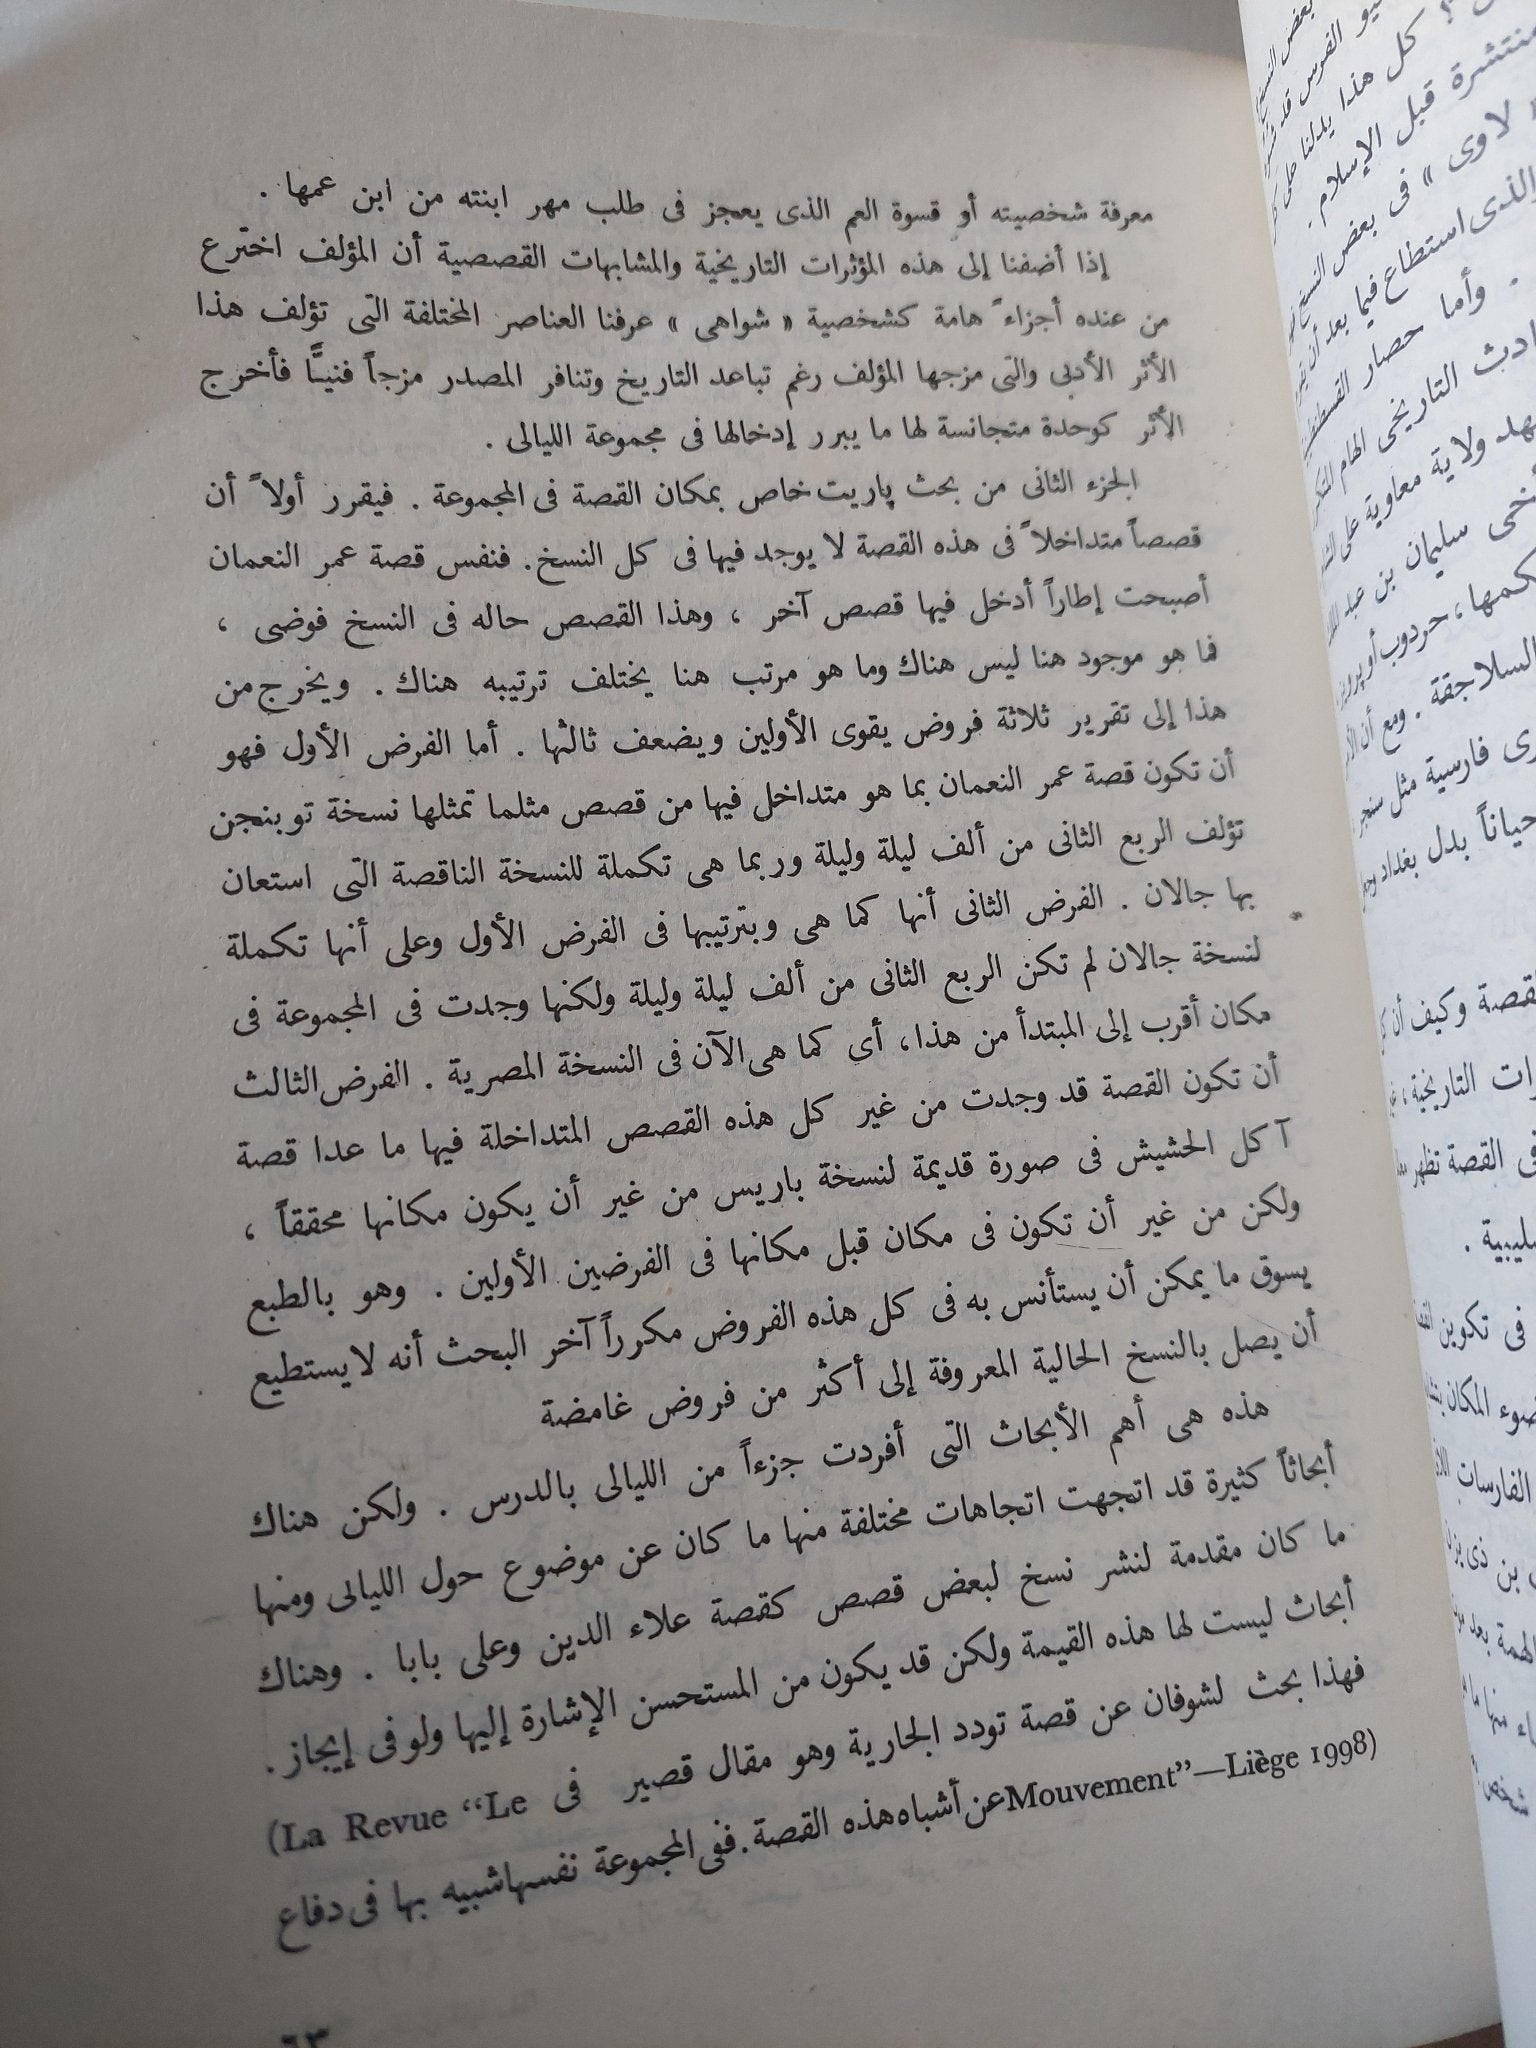 معرفة شخصيته أو قسوة العم الذى يعجز فى طلب مهر ابنته من ابن عمها .
إذا أضفنا إلى هذه المؤثرات التاريخية والمشابهات القصصية أن المؤلف اخترع
من عنده أجزاءً هامة كشخصية « شواهى » عرفنا العناصر المختلفة التى تؤلف هذا
الأثر الأدبى والتى مزجها المؤلف رغم تباعد التاريخ وتنافر المصدر مزجاً فنيًّا فأخرج
الأثر كوحدة متجانسة لها ما يبرر إدخالها فى مجموعة الليالى .
الجزء الثانى من بحث پاريت خاص بمكان القصة فى المجموعة . فيقرر أولاً أن
قصصاً متداخلاً فى هذه القصة لا يوجد فيها فى كل النسخ . فنفس قصة عمر النعمان
أصبحت إطاراً أدخل فيها قصص آخر ، وهذا القصص حاله فى النسخ فوضى ،
فما هو موجود هنا ليس هناك وما هو مرتب هنا يختلف ترتيبه هناك . ويخرج من
هذا إلى تقرير ثلاثة فروض يقوى الأولين ويضعف ثالثها . أما الفرض الأول فهو
أن تكون قصة عمر النعمان بما هو متداخل فيها من قصص مثلما تمثلها نسخة توبنجن
تؤلف الربع الثانى من ألف ليلة وليلة وربما هى تكملة للنسخة الناقصة التى استعان
بها جالان . الفرض الثانى أنها كما هى وبترتيبها فى الفرض الأول وعلى أنها تكملة
لنسخة جالان لم تكن الربع الثانى من ألف ليلة وليلة ولكنها وجدت فى المجموعة فى
مكان أقرب إلى المبتدأ من هذا ، أى كما هى الآن فى النسخة المصرية . الفرض الثالث
أن تكون القصة قد وجدت من غير كل هذه القصص المتداخلة فيها ما عدا قصة
آكل الحشيش فى صورة قديمة لنسخة باريس من غير أن يكون مكانها محققاً ،
ولكن من غير أن تكون فى مكان قبل مكانها فى الفرضين الأولين . وهو بالطبع
يسوق ما يمكن أن يستأنس به فى كل هذه الفروض مكرراً آخر البحث أنه لا يستطيع
أن يصل بالنسخ الحالية المعروفة إلى أكثر من فروض غامضة
هذه هى أهم الأبحاث التى أفردت جزءاً من الليالى بالدرس . ولكن هناك
أبحاثاً كثيرة قد اتجهت اتجاهات مختلفة منها ما كان عن موضوع حول الليالى ومنها
ما كان مقدمة لنشر نسخ لبعض قصص كقصة علاء الدين وعلى بابا . وهناك
أبحاث ليست لها هذه القيمة ولكن قد يكون من المستحسن الإشارة إليها ولو فى إيجاز .
فهذا بحث لشوفان عن قصة تودد الجارية وهو مقال قصير فى (La Revue “Le
Mouvement”—Liège 1998) عن أشباه هذه القصة . ففى المجموعة نفسها شبيه بها فى دفاع
٦٣
منتشرة قبل الإسلام .
لاوى » فى بعض النسخ
والذى استطاع فيما بعد أن
. وأما حصار
التاريخى الهام
ولاية معاوية على
سليمان بن عبد
السلاجقة . ومع أن
فارسية مثل
بدل بغداد
وكيف أن
التاريخية ،
القصة تظهر
فى تكوين
ضوء المكان
الفارسات
بن ذى يزن